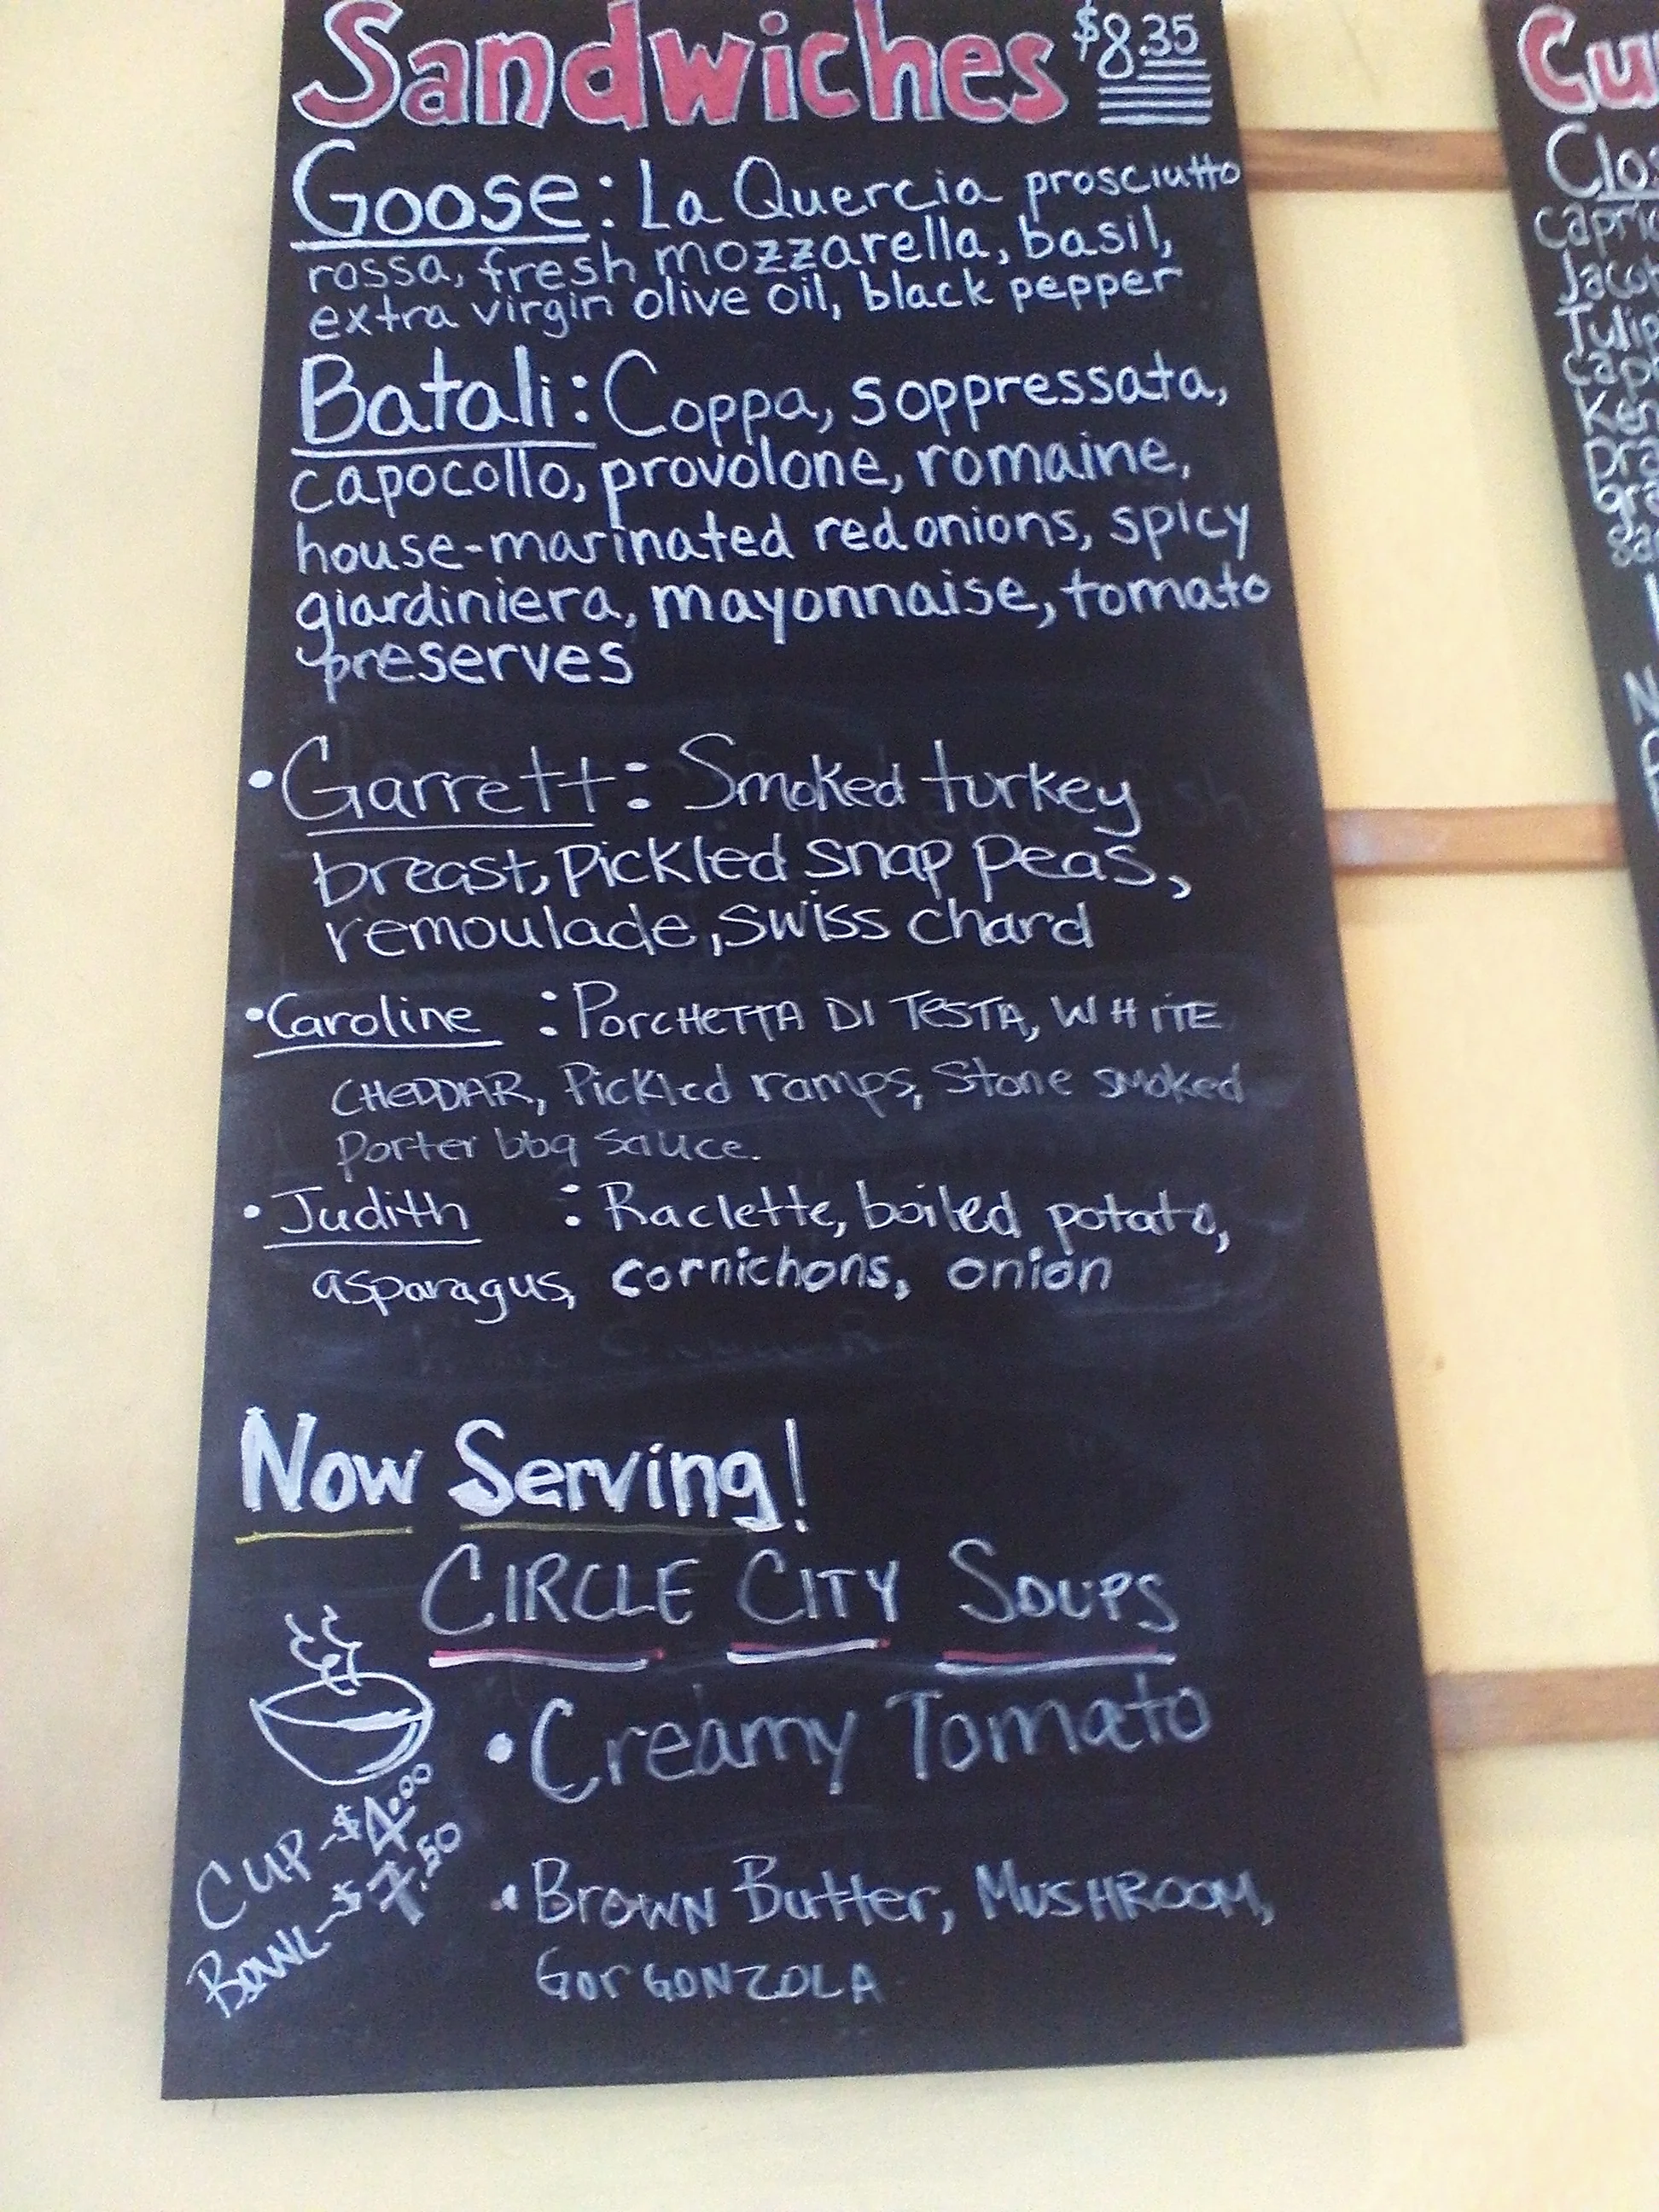 Sandwiches $8.35
Goose: La Quercia prosciutto
rossa, fresh mozzarella, basil,
extra virgin olive oil, black pepper
Batali: Coppa, soppressata,
capocollo, provolone, romaine,
house-marinated red onions, spicy
giardiniera, mayonnaise, tomato
preserves
• Garrett: Smoked turkey
breast, pickled snap peas,
remoulade, swiss chard
• Caroline : PORCHETTA DI TESTA, WHITE
CHEDDAR, Pickled ramps, Stone smoked
Porter bbq sauce.
• Judith : Raclette, boiled potato,
asparagus, cornichons, onion
Now Serving!
CIRCLE CITY SOUPS
• Creamy Tomato
CUP - $4.00
BOWL - $7.50
• BROWN Butter, MUSHROOM,
GORGONZOLA
Cu
Clos
capric
Jacob
Tulip